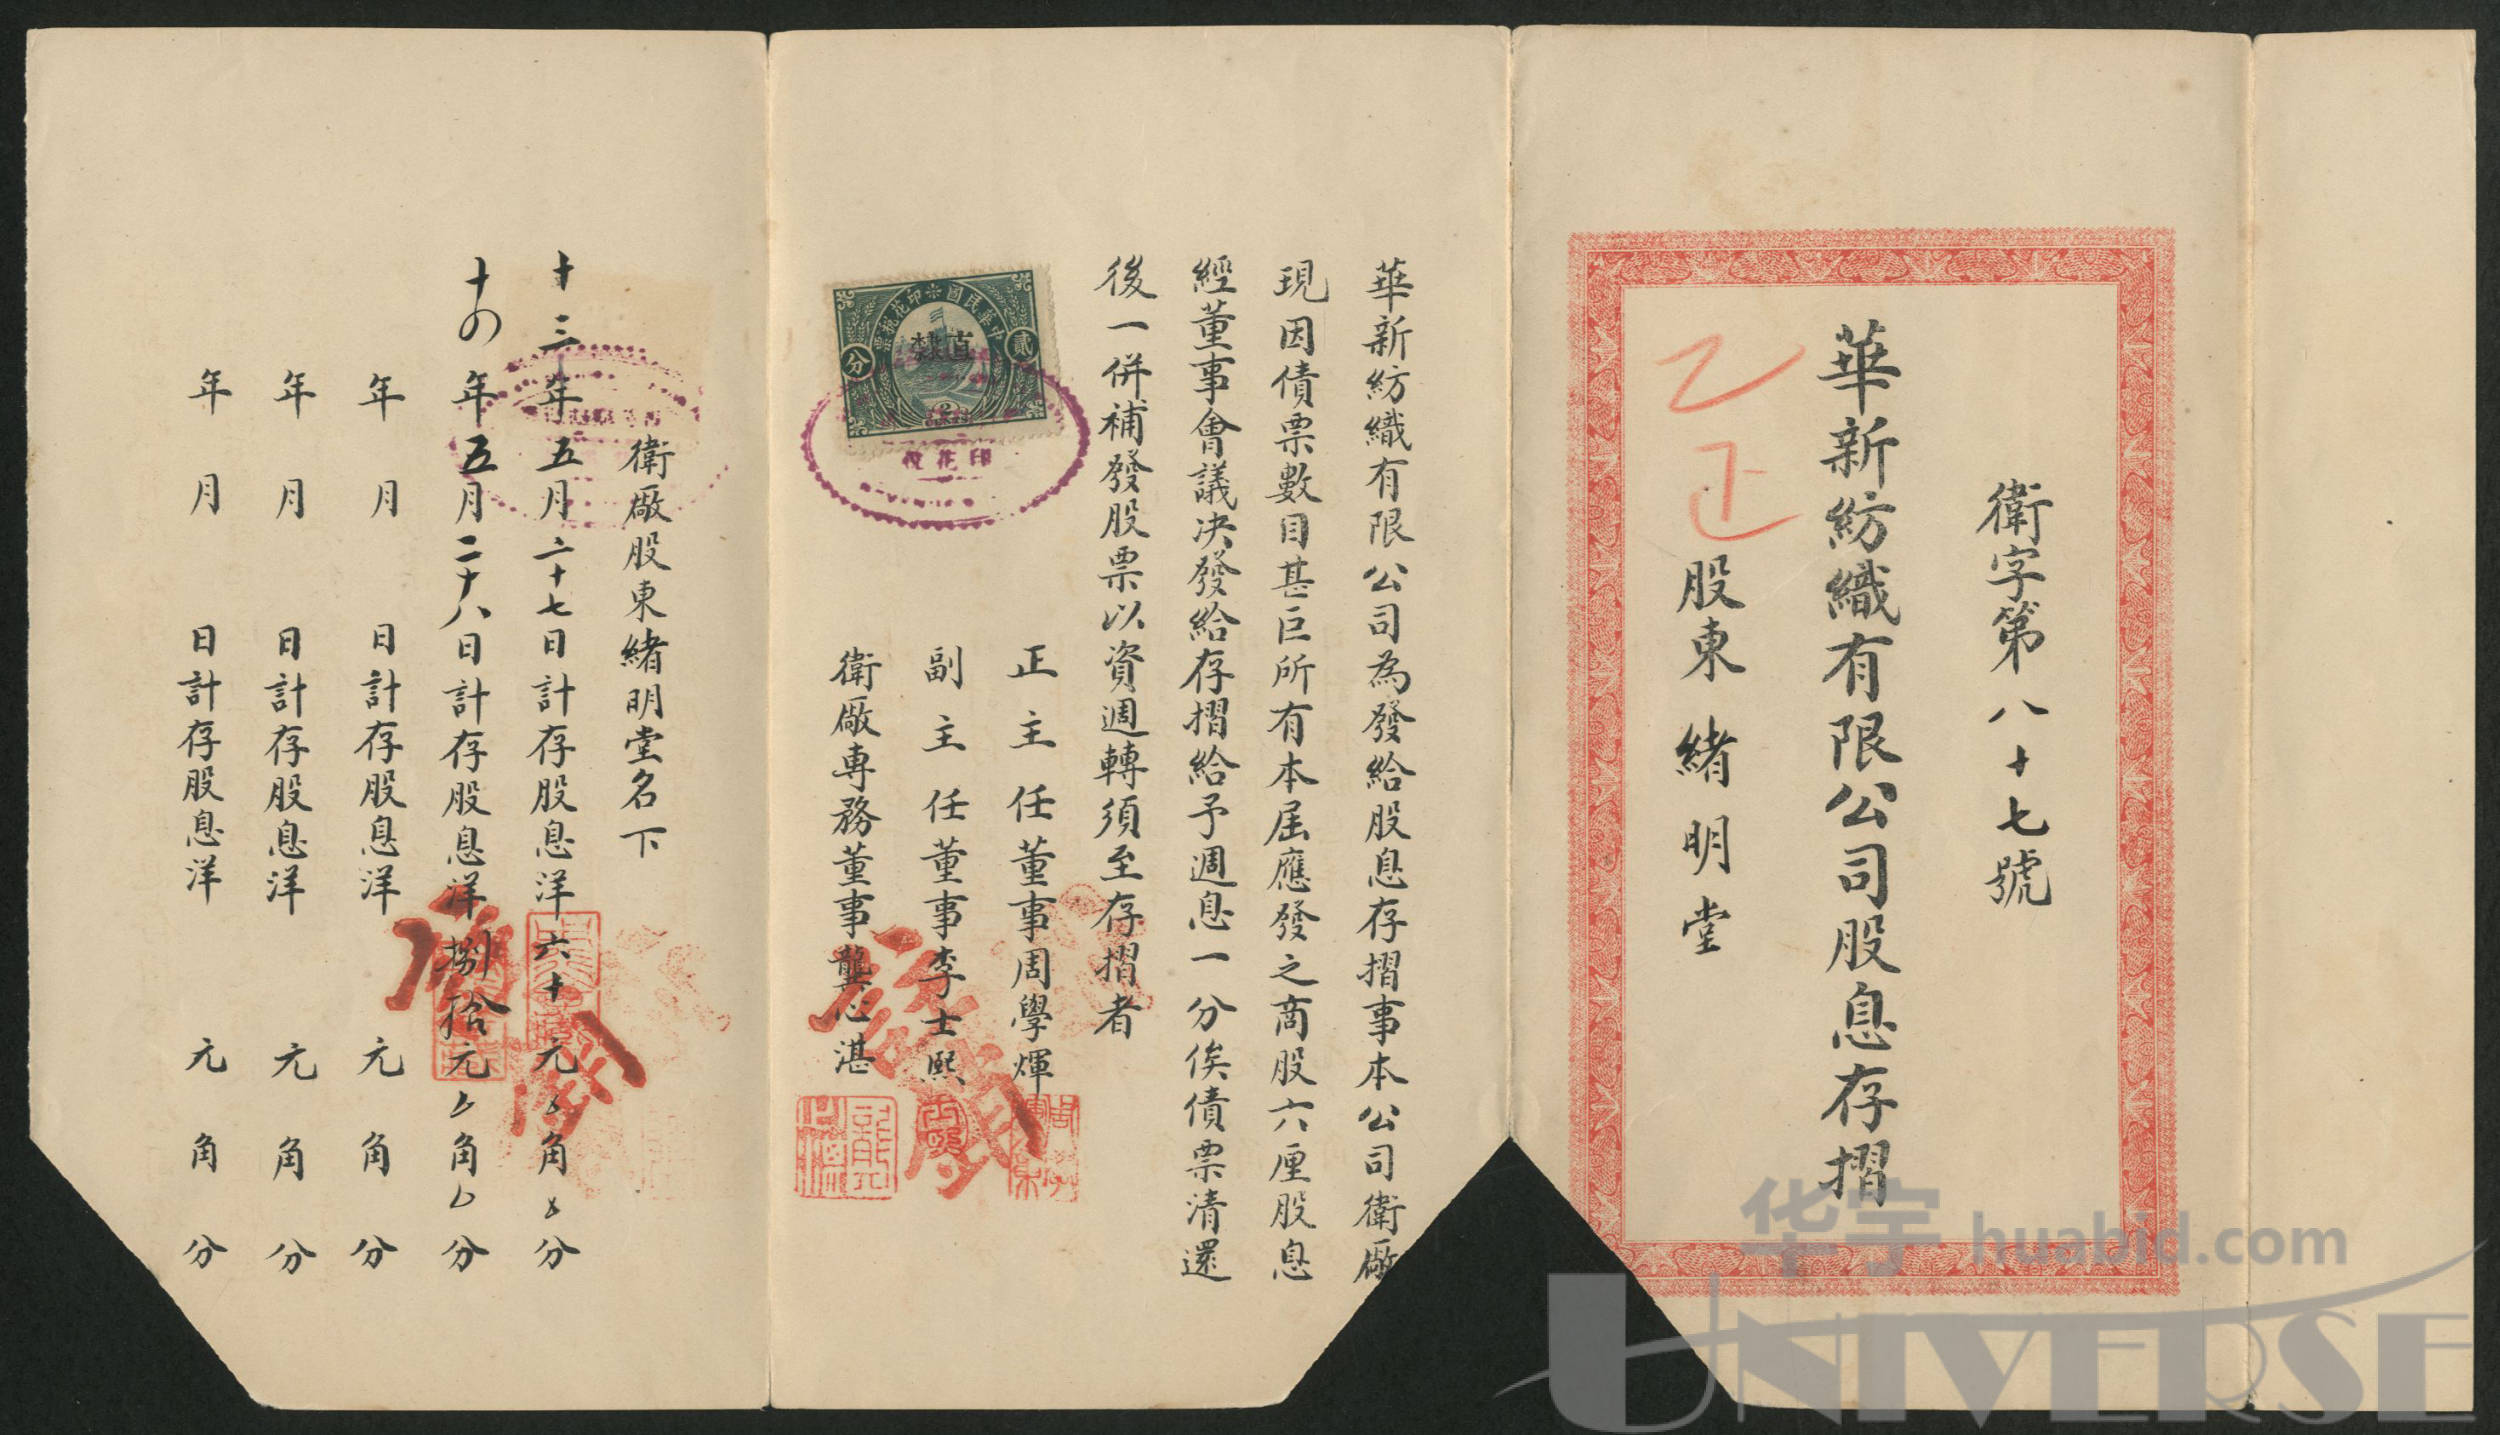 衛字第八十七號
華新紡織有限公司股息存摺
股東 緒明堂
華新紡織有限公司為發給股息存摺事本公司衛廠
現因債票數目甚巨所有本屆應發之商股六厘股息
經董事會議決發給存摺給予週息一分俟債票清還
後一併補發股票以資週轉須至存摺者
正主任董事周學煇
副主任董事李士熙
衛廠專務董事龔心湛
中華民國印花稅票
直隸
貳分
2
印花稅
衛廠股東緒明堂名下
十三年五月二十七日計存股息洋六十元 角 分
十四年五月二十八日計存股息洋捌拾元 角 分
年 月 日計存股息洋 元 角 分
年 月 日計存股息洋 元 角 分
年 月 日計存股息洋 元 角 分
华宇 huabid.com
UNIVERSE